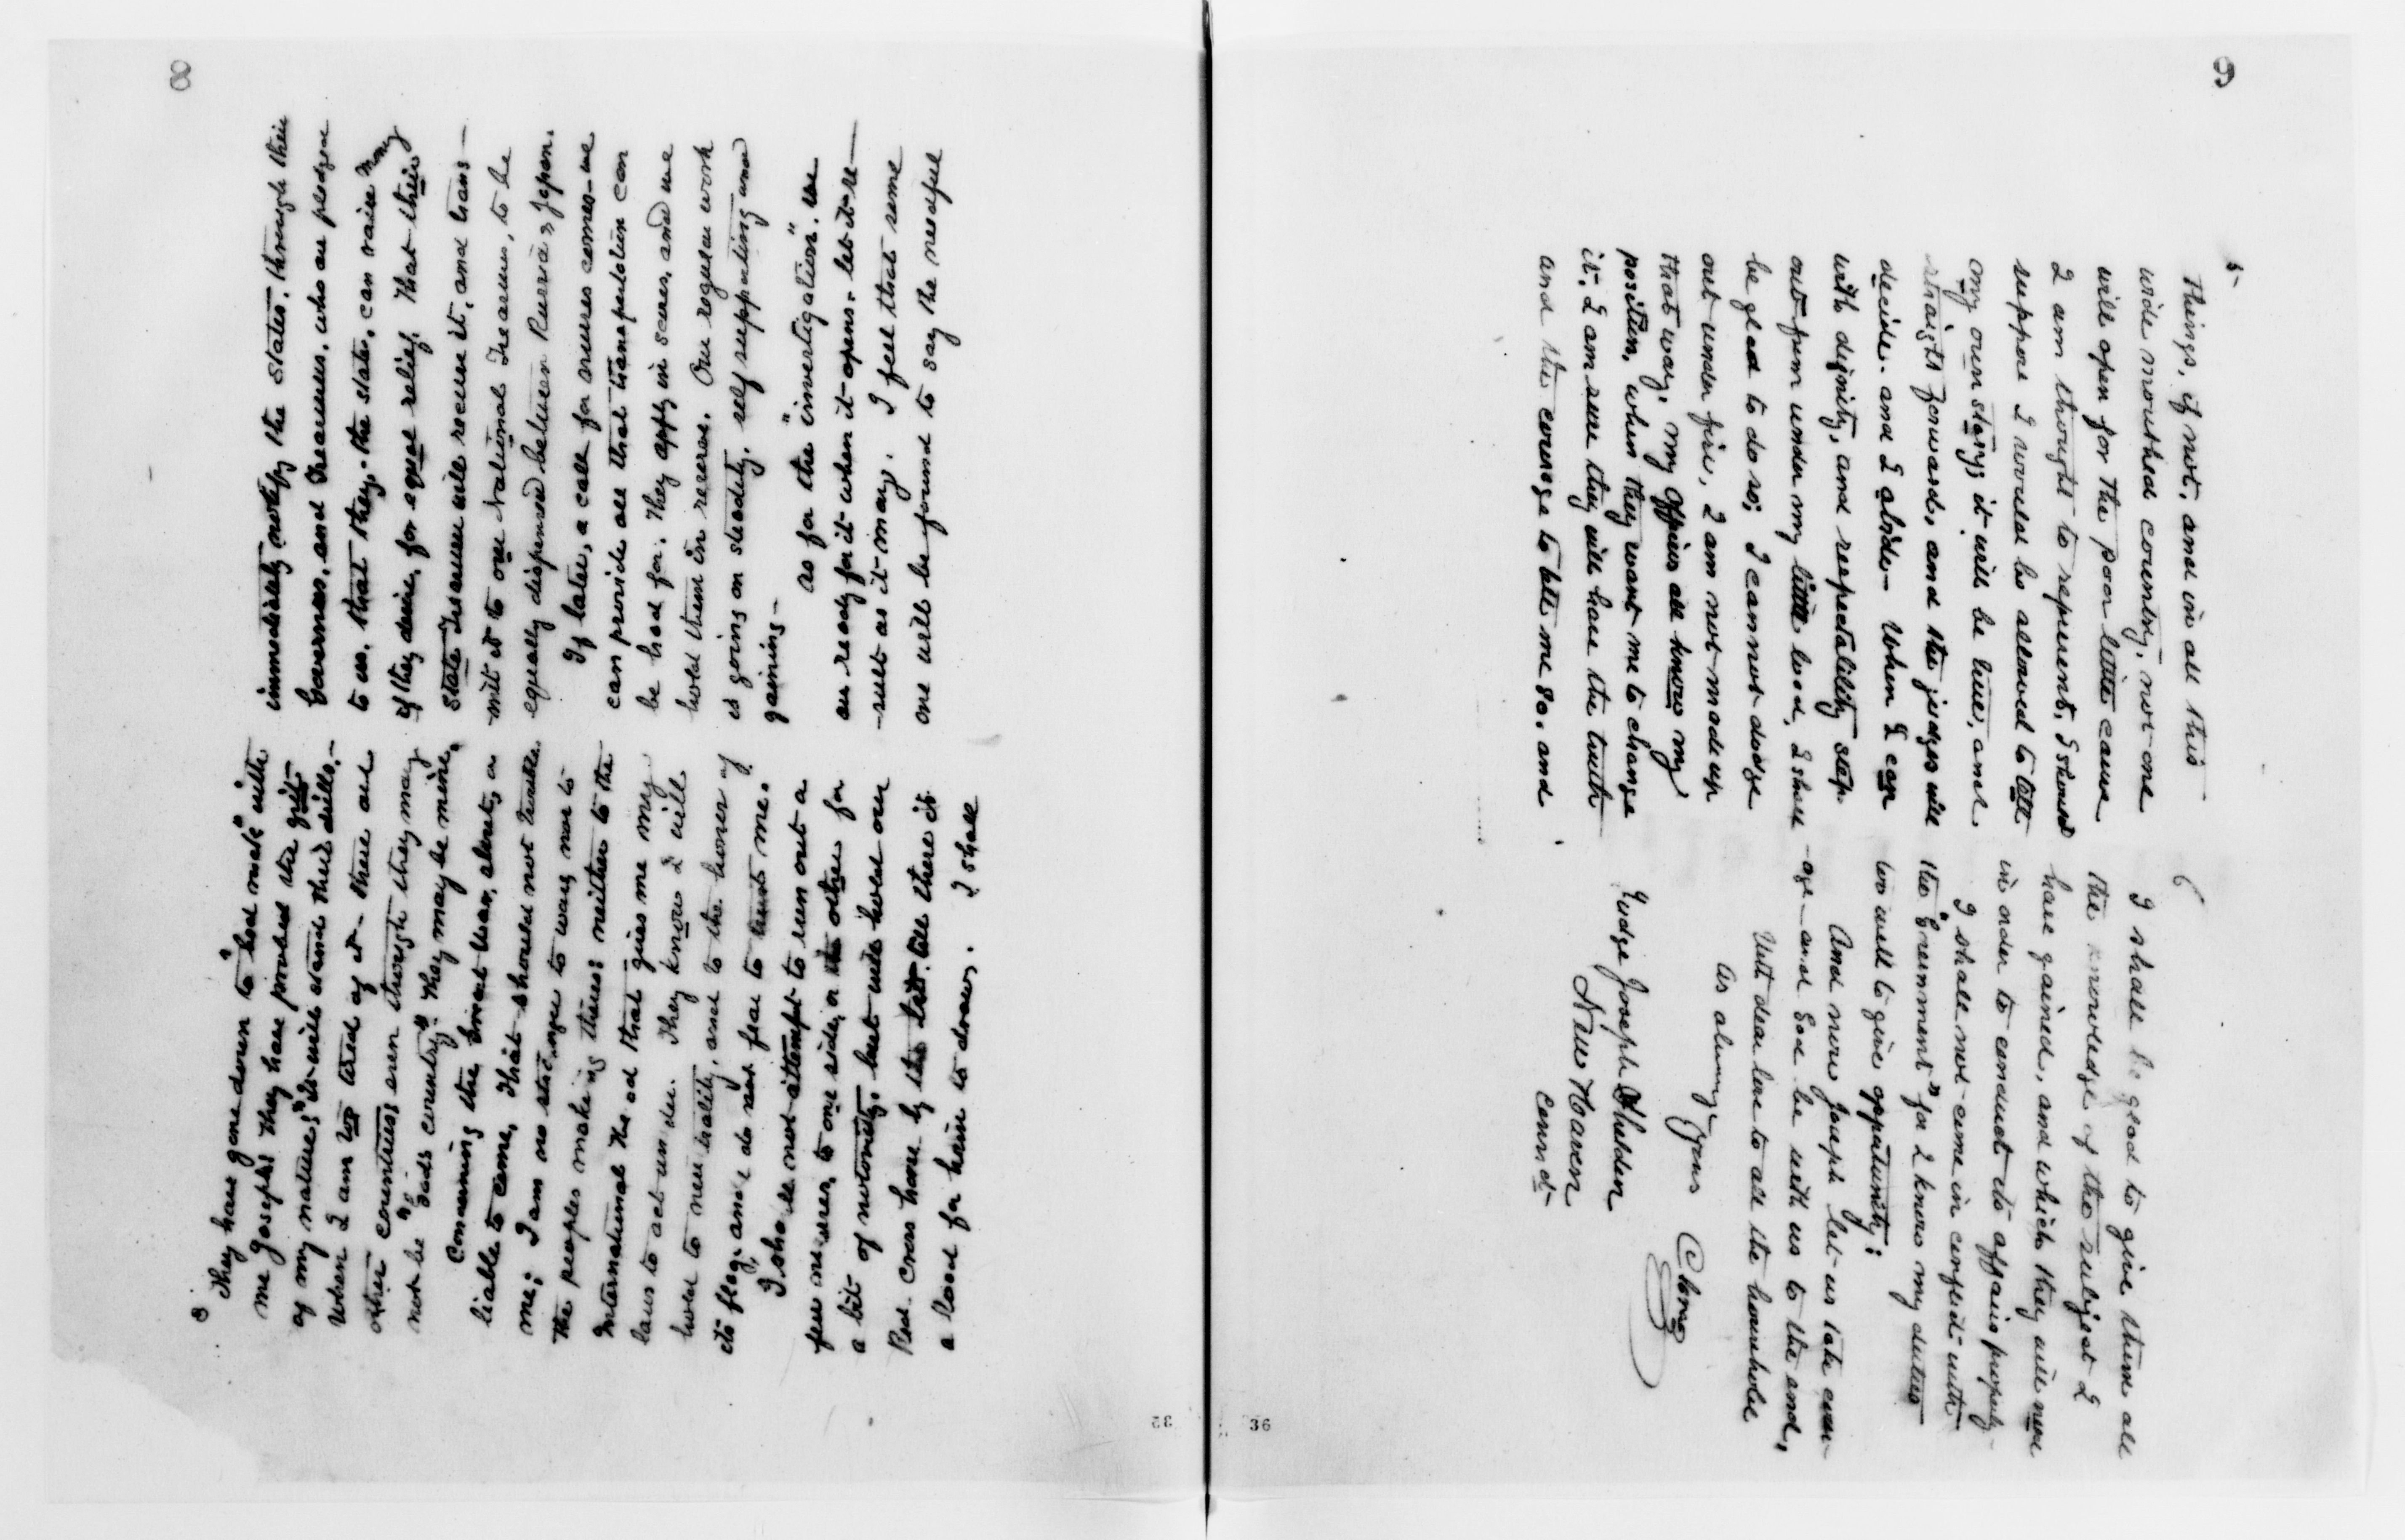 8
3
They have gone down to "hard work" with
me Joseph; they have proved the grit
of my nature; it will stand their drills.-
When I am too tired of it- there are
other countries, even though they may
not be "God's country" they may be mine.
Concerning the great War, about, a
liable to come, that should not trouble
me; I am no stranger to war, nor to
the peoples making these; neither to the
International Method that gives me my
laws to act under. They know I will
hold to neutrality, and to the honor of
its flag, and do not fear to trust me.
I shall not attempt to run out a
few nurses, to one side, or the other for
a bit of notoriety. but will hold our
Red Cross horse by the bit till there is
a load for him to draw. I shall
immediately notify the States, through their
Governors, and Treasurers, who are pledged
to us, that they, the states, can raise money
if they desire, for equal relief, that their
State Treasurer will receive it, and trans-
mit it to our National Treasurer, to be
equally dispensed between Russia & Japan.
If later, a call for nurses comes-we
can provide all that transportation can
be had for. They apply in scores, and we
hold them in reserve. Our regular work
is going on steadily, self supporting and
gaining-
As for the "investigation". We
are ready for it when it opens. let it re-
-sult as it may. I feel that some
one will be found to say the needful
9
5-
things, if not, and in all this
wide mouthed country, not one
will open for the poor little cause
I am thought to represent, I should
suppose I would be allowed to tell
my own story; it will be true, and
straight forward, and the judges will
decide. and I abide- When I can
with dignity, and respectability step
out from under my little load, I shall
be glad to do so; I cannot dodge
out under fire, I am not made up
that way; my Officers all know my
position, when they want me to change
it, I am sure they will have the truth
and the courage to tell me so. and
6
I shall be glad to give them all
the knowledge of the subject I
have gained, and which they will need
in order to conduct its affairs properly-
I shall not come in conflict with
the "Government" for I know my duties
too well to give opportunity;
And now Joseph let us take cour-
age- and God be with us to the end,
With dear love to all the household
As always
Yours
Clara
Judge Joseph Sheldon
New Haven
Connct-
32
36